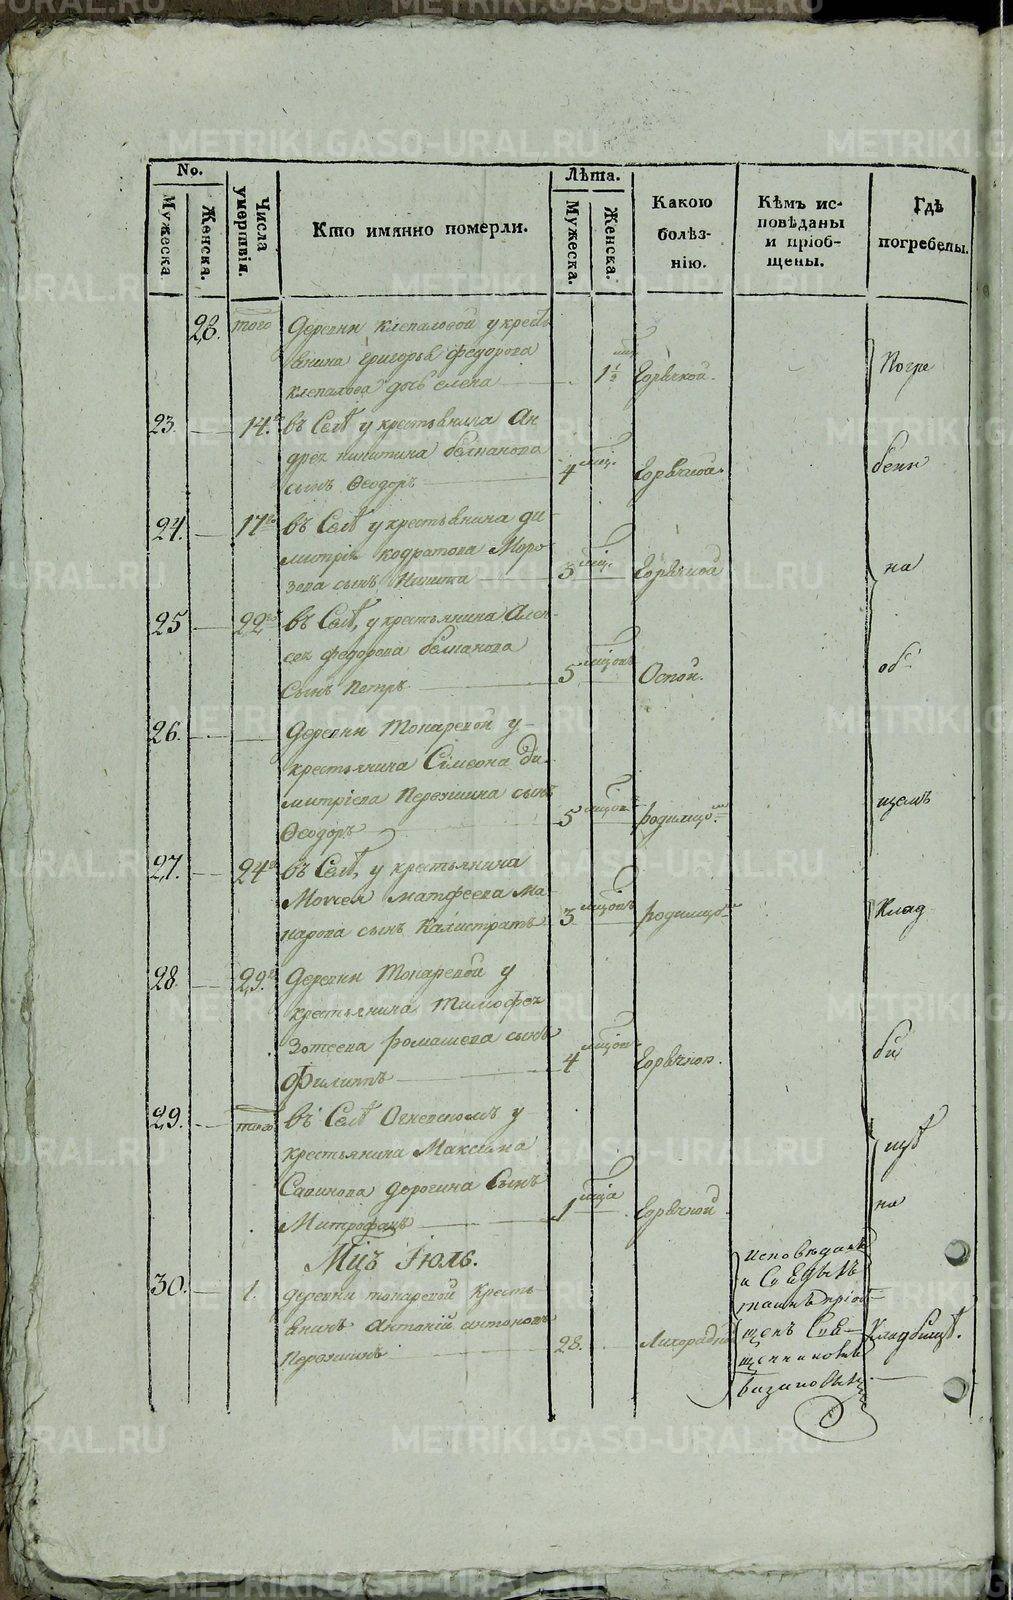 No.
Мужеска
Женска.
Числа умертвія.
Кто имянно померли.
Лѣта.
Мужеска.
Женска.
Какою болѣз-
нію.
Кѣмъ ис-
повѣданы
и пріоб-
щены.
Гдѣ
погребены.
28. того Деревни Клепаловой у кресть
янина Григорья Федорова
Клепалова дочь елена 1½ Горячкой.
23. 14. въ Селѣ у крестьянина Ан
дрея никитина
сынъ Ѳеодоръ 4 Горячкой.
24. 17 въ Селѣ у крестьянина ди
митрія кодратова Моро
зова сынъ Никита 3 Горячкой
25 22 въ Селѣ, у крестьянина Алек
сея федорова
Сынъ Петръ 5 Оспой.
26. Деревни Токаревой у
крестьянина Сімеона Ди
митріева Пережгина сынъ
Ѳеодоръ 5 родимцо
27. 24 въ Селѣ, у крестьянина
Моисея матфеева Ма
карова сынъ Калистратъ 3 родимцо
28. 29. Деревни Токаревой у
крестьянина Тимофея
Зотеева ромашева сынъ
Филиппъ 4 Горячкою.
29. того въ Селѣ Огневскомъ у
крестьянина Максима
Савинова дорогина Сынъ
Митрофанъ 1 Горячкой
Погре
бены
на
об
щемъ
Клад
би
щѣ
на
Мцъ Іюль.
30. 1. деревни токаревой Кресть
янинъ Антоній антоновъ
Пережгинъ 28. Лихорадкой
исповѣданъ
и Св.
таинъ пріоб
щенъ Свя
щенникомъ
Кладбищѣ.
METRIKI.GASO-URAL.RU